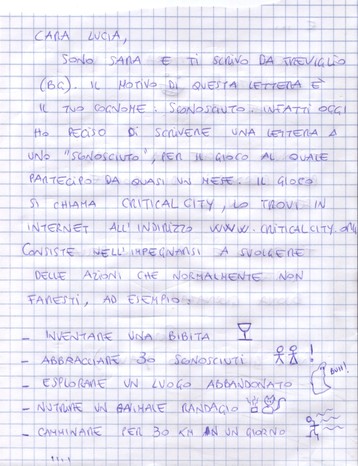 CARA LUCIA,
SONO SARA E TI SCRIVO DA TREVIGLIO
(BG). IL MOTIVO DI QUESTA LETTERA È
IL TUO COGNOME: SCONOSCIUTO. INFATTI OGGI
HO DECISO DI SCRIVERE UNA LETTERA A
UNO "SCONOSCIUTO", PER IL GIOCO AL QUALE
PARTECIPO DA QUASI UN MESE. IL GIOCO
SI CHIAMA CRITICALCITY, LO TROVI IN
INTERNET ALL'INDIRIZZO WWW.CRITICALCITY.ORG
CONSISTE NELL'IMPEGNARSI A SVOLGERE
DELLE AZIONI CHE NORMALMENTE NON
FARESTI, AD ESEMPIO:
- INVENTARE UNA BIBITA
- ABBRACCIARE 30 SCONOSCIUTI !
- ESPLORARE UN LUOGO ABBANDONATO BUH!
- NUTRIRE UN ANIMALE RANDAGIO
- CAMMINARE PER 30 KM IN UN GIORNO